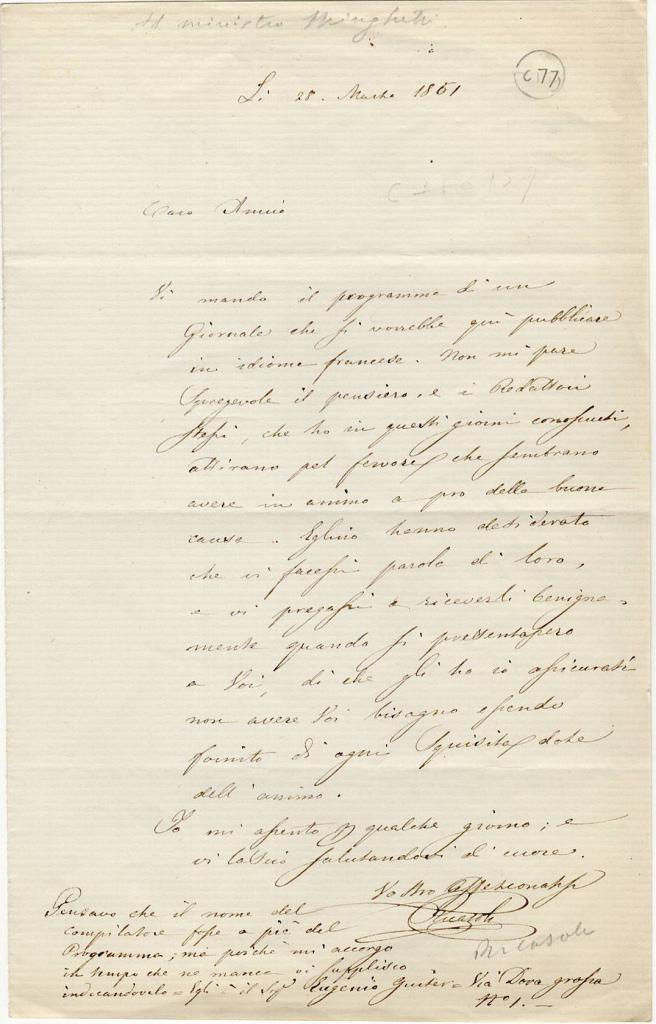 Al ministro Minghetti
677
Li 28. Marzo 1861
Caro Amico
Vi mando il programma di un
Giornale che si vorrebbe quì pubblicare
in idioma francese. Non mi pare
spregevole il pensiero, e i Redattori
stessi, che ho in questi giorni conosciuti,
attirano pel fervore che sembrano
avere in animo a pro della buona
causa. Eglino hanno desiderato
che vi facessi parola di loro,
e vi pregassi a riceverli benigna=
mente quando si presentassero
a Voi, di che gli ho io assicurati
non avere Voi bisogno essendo
fornito di ogni squisita dote
dell'animo.
Io mi assento p qualche giorno; e
vi lascio salutandovi di cuore.
Vostro Affezionatiss
Ricasoli
Ricasoli
Pensavo che il nome del
compilatore fosse a piè del
Programma; ma poichè mi accorgo
in tempo che ne manca vi supplisco
indicandovelo = Egli è il Sigr Eugenio Guiter = Via Dora grossa
No 1. —